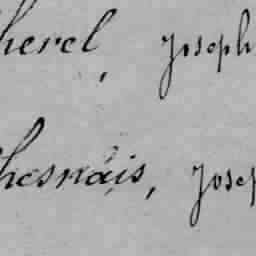 herel, Joseph
hesnais, Josep